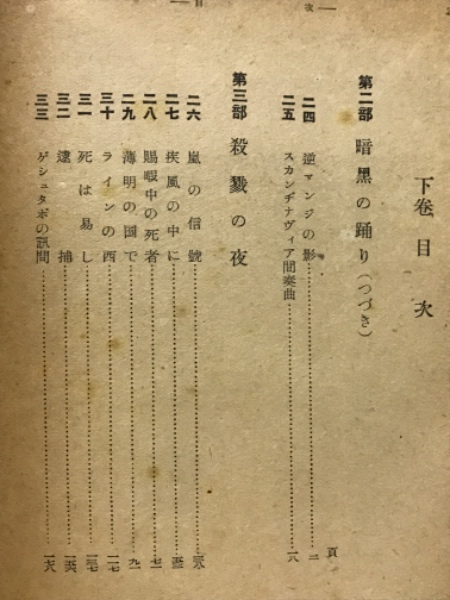 目次
下卷目次
第二部 暗黒の踊り(つづき)
頁
二四 逆マンジの影 一
二五 スカンヂナヴィア間奏曲 一八
第三部 殺戮の夜
二六 嵐の信號
二七 疾風の中に
二八 賜暇中の死者 七一
二九 薄明の國で 九一
三十 ラインの西 一一七
三一 死は易し 一三七
三二 逮捕
三三 ゲシュタポの訊問